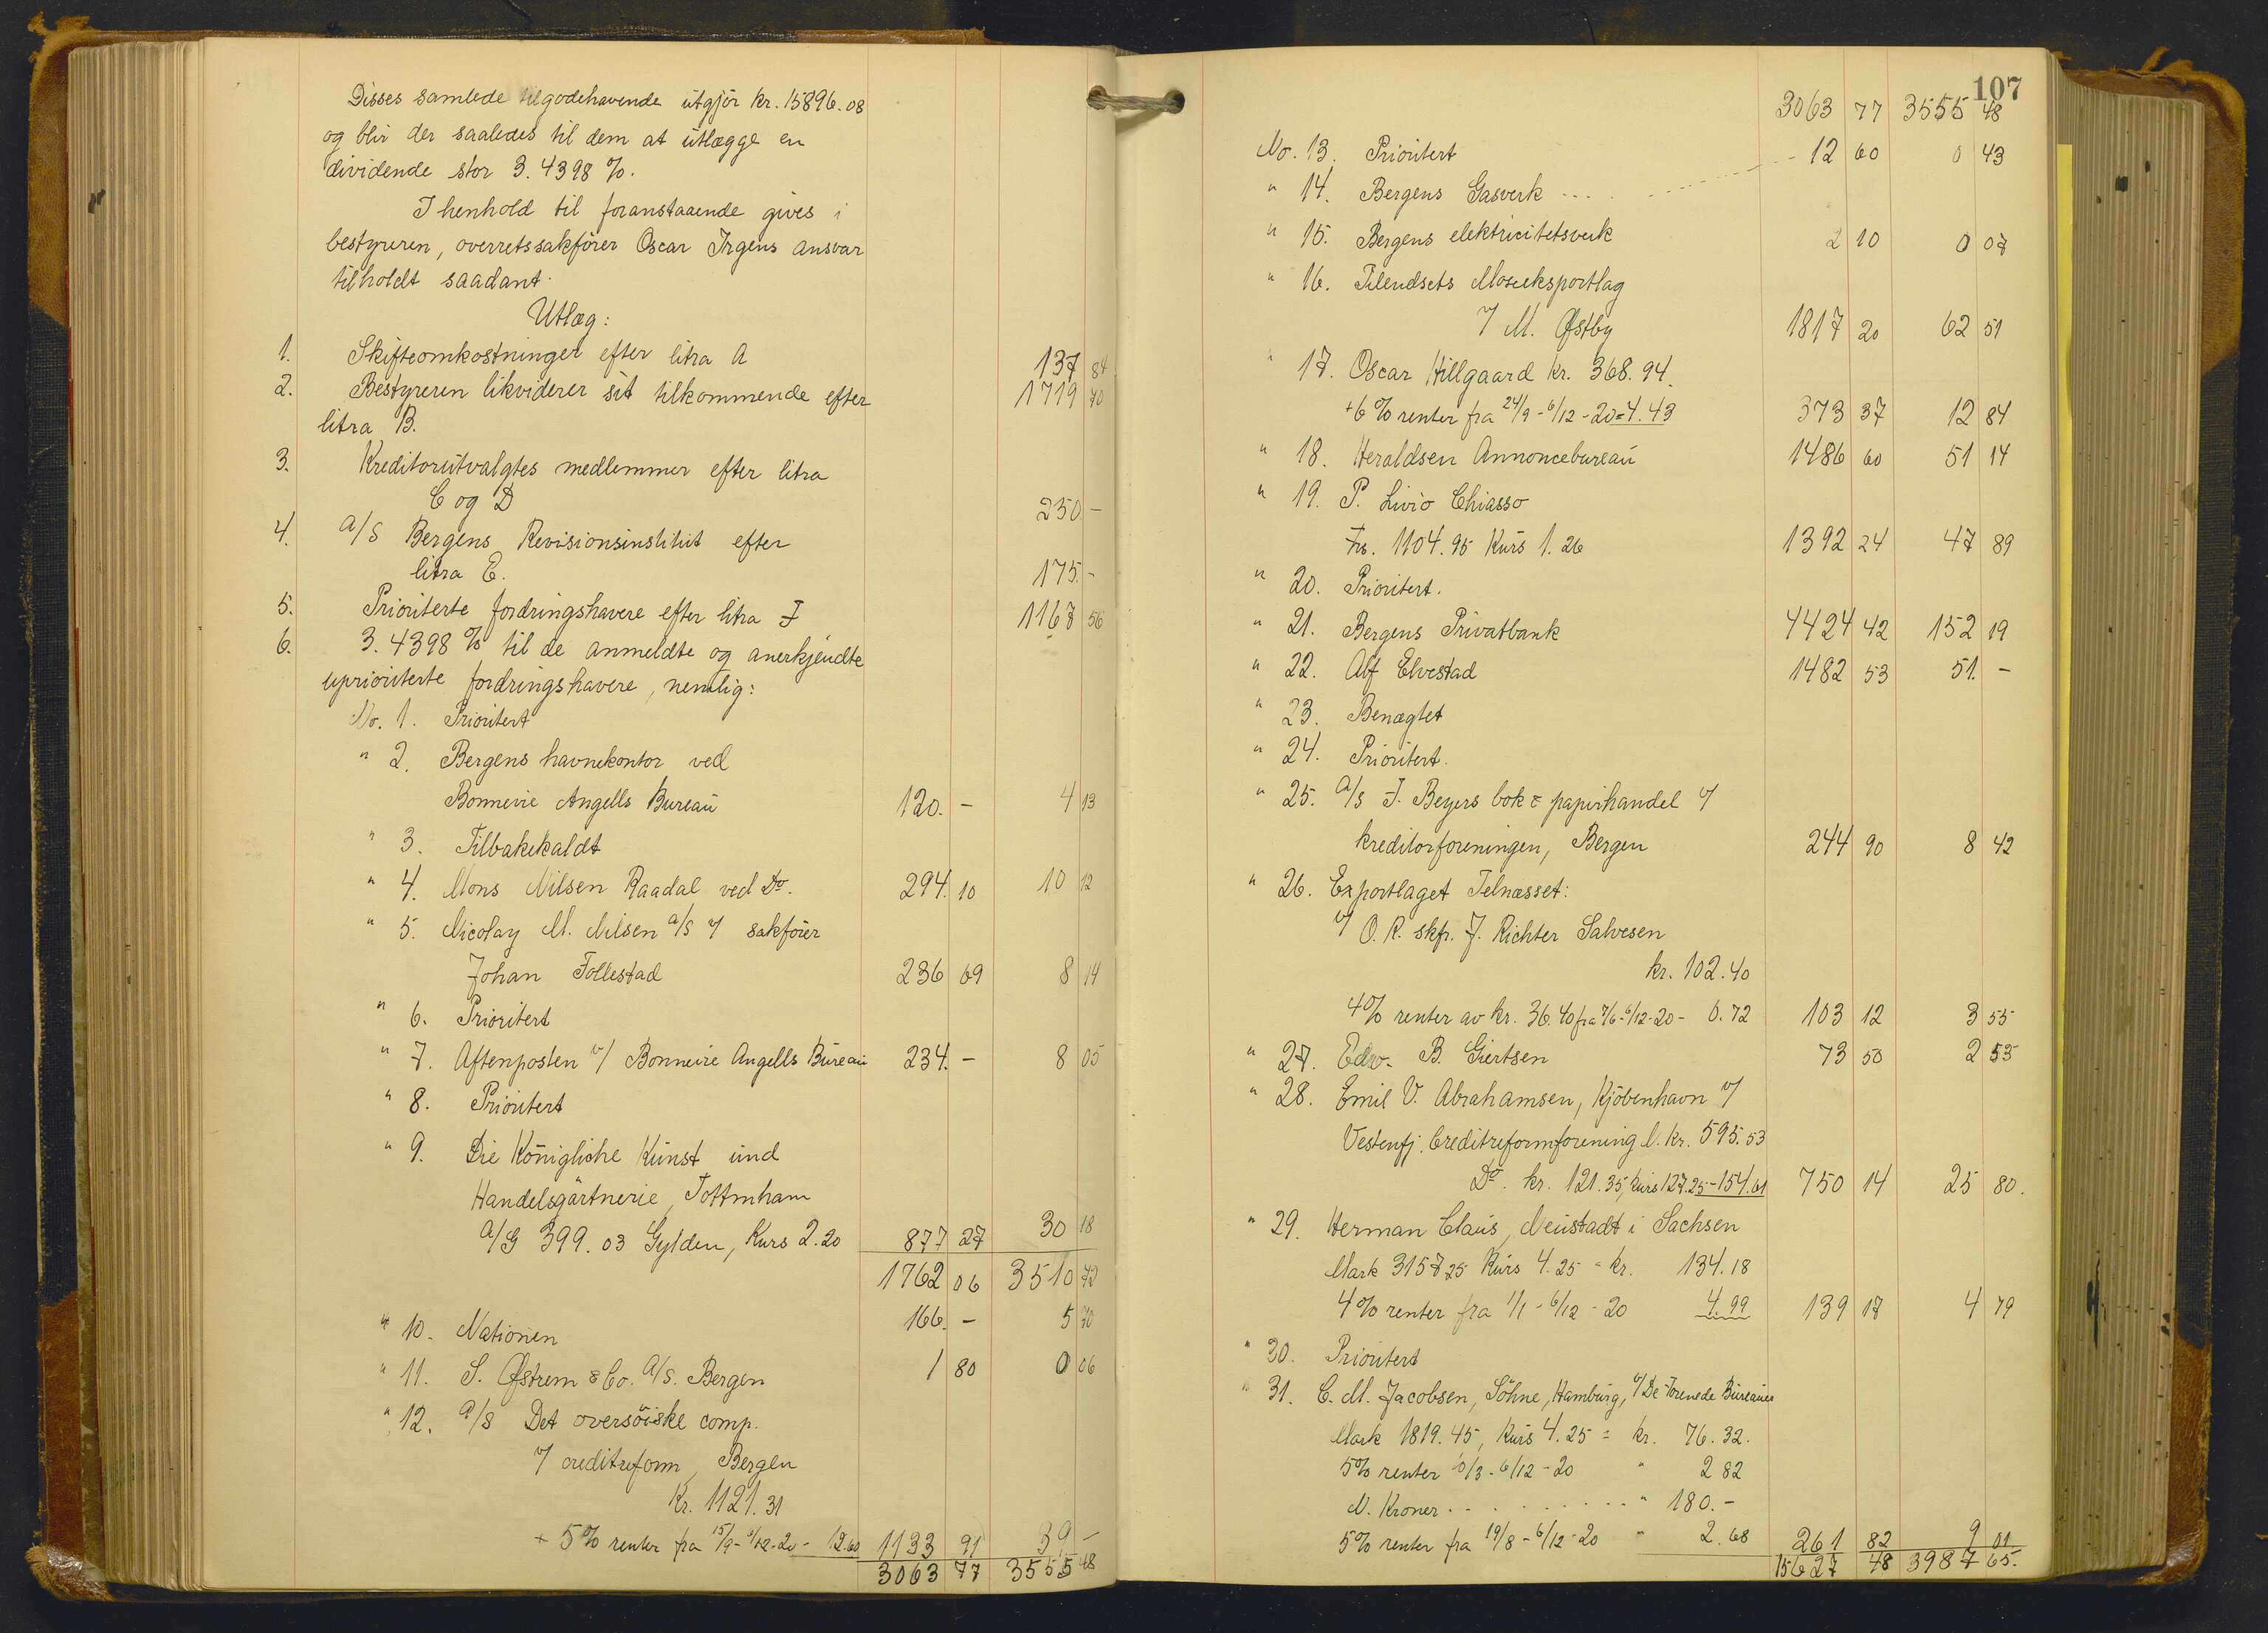 Disses samlede tilgodehavende utgjör kr. 15896.08
og blir der saaledes til dem at utlægge en
dividende stor 3.4398 %.
I henhold til foranstaaende gives i
bestyreren, overretssakförer Oscar Irgens ansvar
tilholdt saadant
Utlæg:
1. Skifteomkostninger efter litra A 137 84
2. Bestyreren likviderer sit tilkommende efter 1719 70
litra B.
3. Kreditorutvalgtes medlemmer efter litra
C og D 250 -
4. A/S Bergens Revisionsinstitut efter
litra E. 175.-
5. Prioriterte fordringshavere efter litra F 1167 56
6. 3.4398 % til de anmeldte og anerkjendte
uprioriterte fordringshavere, nemlig:
No. 1. Prioritert
" 2. Bergens havnekontor ved
Bonnevie Angells Bureau 120.- 4 13
" 3. Tilbakekaldt
" 4. Mons Nilsen Raadal ved Do. 294.10 10 12
" 5. Nicolay M. Nilsen A/S v/ sakförer
Johan Follestad 236 69 8 14
" 6. Prioritert
" 7. Aftenposten v/ Bonnevie Angells Bureau 234.- 8 05
" 8. Prioritert
" 9. Die Königliche Kunst und
Handelsgärtnerie, Tottmham
A/G 399.03 Gylden, Kurs 2.20 877 27 30 18
1762 06 3510 72
" 10. Nationen 166.- 5 70
" 11. S. Østrem & Co. A/S. Bergen 1 80 0 06
" 12. A/S Det oversöiske comp.
v/ creditreform, Bergen
Kr. 1121.31
+ 5% renter fra 15/9-6/12-20 - 12.60 1133 91 39 -
3063 77 3555 48
107
3063 77 3555 48
No. 13. Prioritert
" 14. Bergens Gasverk ... 12 60 0 43
" 15. Bergens elektricitetsverk 2 10 0 07
" 16. Tilendsets Moseeksportlag
v/ M. Østby 1817 20 62 51
" 17. Oscar Hillgaard kr. 368.94.
+6% renter fra 24/9-6/12-20=4.43 373 37 12 84
" 18. Heraldsen Annoncebureau 1486 60 51 14
" 19. P. Livio Chiasso
Frs. 1104.95 Kurs 1.26 1392 24 47 89
" 20. Prioritert.
" 21. Bergens Privatbank 4424 42 152 19
" 22. Alf Elvestad 1482 53 51.-
" 23. Benægtet
" 24. Prioritert.
" 25. A/S F. Beyers bok & papirhandel v/
kreditorforeningen, Bergen 244 90 8 42
" 26. Exportlaget Telnæsset:
v/ O.R. skfr. J. Richter Salvesen
kr. 102.40
4% renter av kr. 36.40 fra 7/6-6/12-20- 0.72 103 12 3 55
" 27. Edv. B. Giertsen 73 50 2 53
" 28. Emil V. Abrahamsen, Kjöbenhavn v/
Vestenfj. Creditreformforening N. kr. 595.53
Do. kr. 121.35, kurs 127.25-154.61 750 14 25 80.
" 29. Herman Claus, Neustadt i Sachsen
Mark 3157 25 Kurs 4.25 = kr. 134.18
4% renter fra 1/1-6/12-20 4.99 139 17 4 79
" 30. Prioritert
" 31. C. M. Jacobsen, Söhne, Hamburg, v/ De Forenede Bureauer
Mark 1819.45, Kurs 4.25 = kr. 76.32.
5% renter 10/3-6/12-20 " 2 82
N. Kroner .......... " 180.-
5% renter fra 19/8-6/12-20 " 2.68 261 82 9 01
15627 48 3987 65.